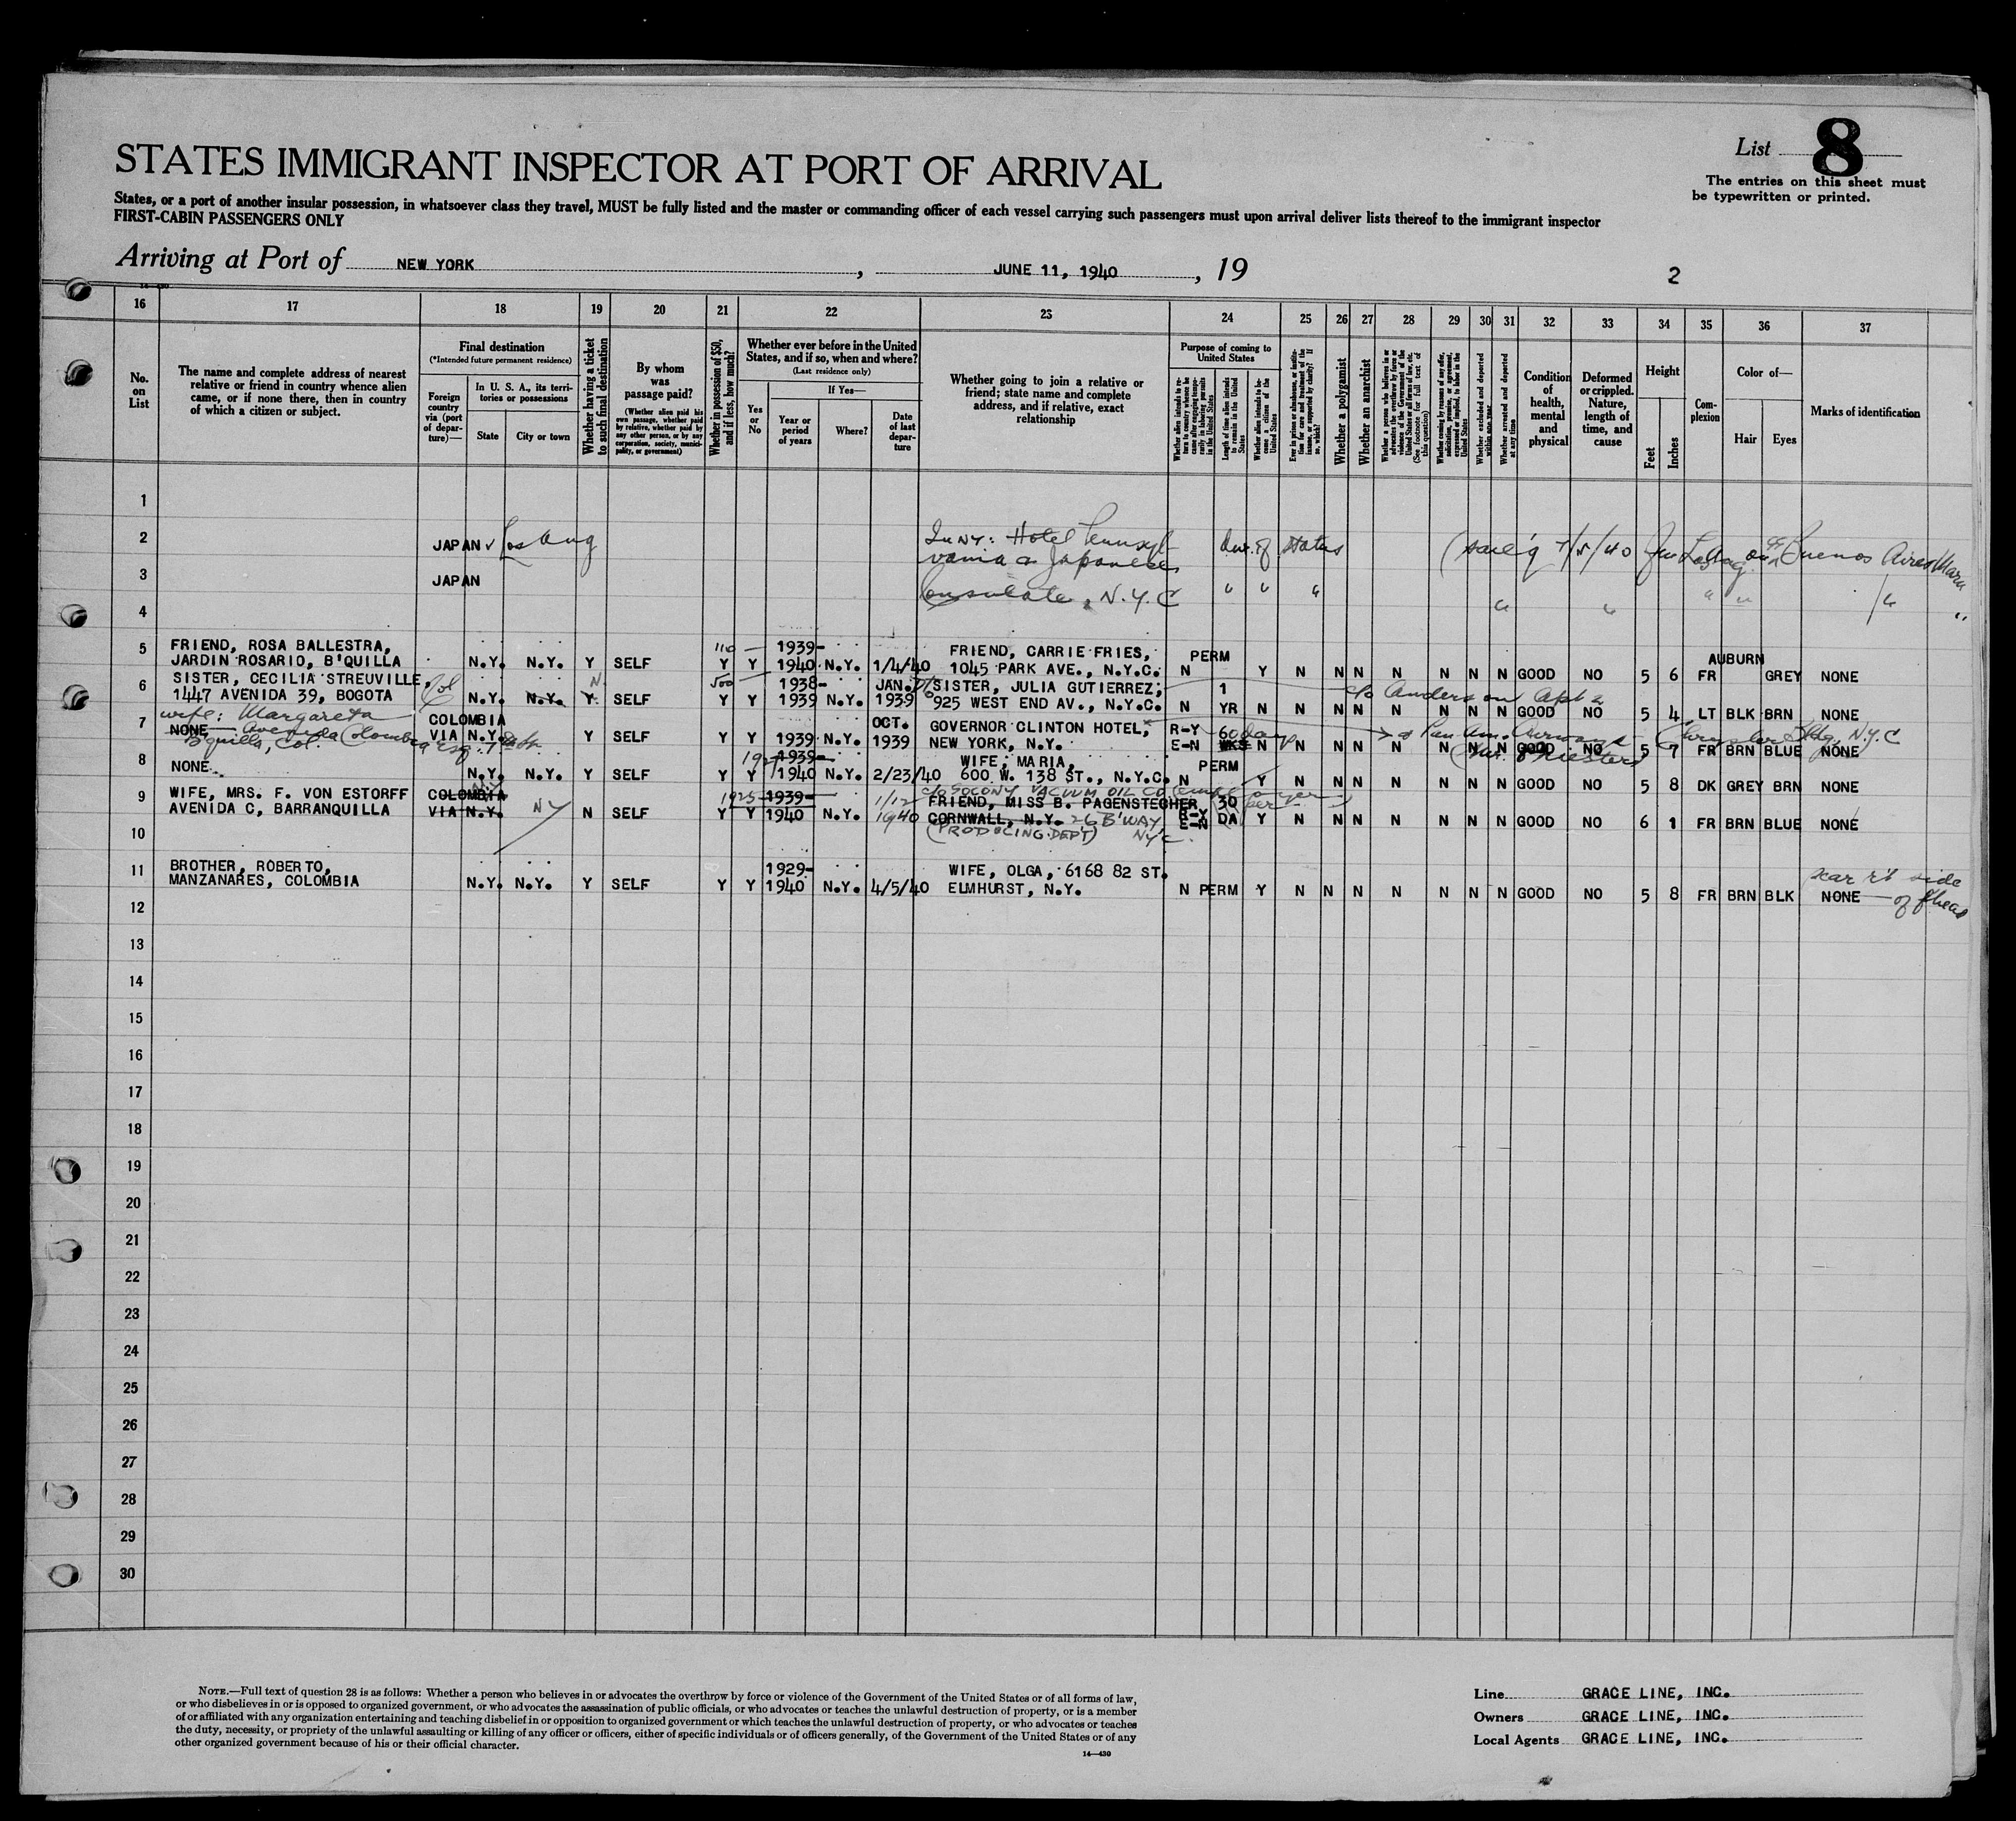 List 8
The entries on this sheet must
be typewritten or printed.
STATES IMMIGRANT INSPECTOR AT PORT OF ARRIVAL
States, or a port of another insular possession, in whatsoever class they travel, MUST be fully listed and the master or commanding officer of each vessel carrying such passengers must upon arrival deliver lists thereof to the immigrant inspector
FIRST-CABIN PASSENGERS ONLY
Arriving at Port of NEW YORK , JUNE 11, 1940 , 19
2
16 17 18 19 20 21 22 23 24 25 26 27 28 29 30 31 32 33 34 35 36 37
No. on List
The name and complete address of nearest relative or friend in country whence alien came, or if none there, then in country of which a citizen or subject.
Final destination
(*Intended future permanent residence)
Foreign country via (port of departure)—
In U. S. A., its territories or possessions
State
City or town
Whether having a ticket to such final destination
By whom was passage paid?
(Whether alien paid his own passage, whether paid by relative, whether paid by any other person, or by any corporation, society, municipality, or government)
Whether in possession of $50, and if less, how much?
Whether ever before in the United States, and if so, when and where?
(Last residence only)
Yes or No
If Yes—
Year or period of years
Where?
Date of last departure
Whether going to join a relative or friend; state name and complete address, and if relative, exact relationship
Purpose of coming to United States
Whether alien intends to return to country whence he came after engaging temporarily in laboring pursuits in the United States
Length of time alien intends to remain in the United States
Whether alien intends to become a citizen of the United States
Ever in prison or almshouse, or institution for care and treatment of the insane, or supported by charity? If so, which?
Whether a polygamist
Whether an anarchist
Whether a person who believes in or advocates the overthrow by force or violence of the Government of the United States or all forms of law, etc. (See footnote for full text of this question)
Whether coming by reason of any offer, solicitation, promise, or agreement, expressed or implied, to labor in the United States
Whether excluded and deported within one year
Whether arrested and deported at any time
Condition of health, mental and physical
Deformed or crippled. Nature, length of time, and cause
Height
Feet
Inches
Complexion
Color of—
Hair
Eyes
Marks of identification
1
2 JAPAN Los Ang In NY: Hotel Pennsyl- dur. of status 7/5/40 Buenos Aires Maru
vania Japanese
3 JAPAN Consulate, N.Y.C " " "
4
5 FRIEND, ROSA BALLESTRA, 110 1939- FRIEND, CARRIE FRIES, PERM AUBURN
JARDIN ROSARIO, B'QUILLA N.Y. N.Y. Y SELF Y Y 1940 N.Y. 1/4/40 1045 PARK AVE., N.Y.C. N Y N N N N N N N GOOD NO 5 6 FR GREY NONE
6 SISTER, CECILIA STREUVILLE, Col N 500 1938- JAN. SISTER, JULIA GUTIERREZ, 1 c/o Anderson Apt 2
1447 AVENIDA 39, BOGOTA N.Y. N.Y. Y SELF Y Y 1939 N.Y. 1939 925 WEST END AV., N.Y.C. N YR N N N N N N N N GOOD NO 5 4 LT BLK BRN NONE
7 wife: Margareta COLOMBIA OCT. GOVERNOR CLINTON HOTEL, R-Y 60 days Pan Am. Airways Chrysler Bldg, N.Y.C
NONE Avenida Colombia VIA N.Y. Y SELF Y Y 1939 N.Y. 1939 NEW YORK, N.Y. E-N WKS N N N N N N N N GOOD NO 5 7 FR BRN BLUE NONE
B'quilla, Col.
8 NONE 1939- WIFE, MARIA, PERM
N.Y. N.Y. Y SELF Y Y 1940 N.Y. 2/23/40 600 W. 138 ST., N.Y.C. N Y N N N N N N N GOOD NO 5 8 DK GREY BRN NONE
c/o SOCONY VACUUM OIL CO
9 WIFE, MRS. F. VON ESTORFF COLOMBIA NY 1925 1939- 1/12 FRIEND, MISS B. PAGENSTECHER 30
AVENIDA C, BARRANQUILLA VIA N.Y. NY N SELF Y Y 1940 N.Y. 1940 CORNWALL, N.Y. 26 B'WAY R-Y E-N DA Y N N N N N N N GOOD NO 6 1 FR BRN BLUE NONE
10 (PRODUCING DEPT) NYC.
11 BROTHER, ROBERTO, 1929- WIFE, OLGA, 6168 82 ST. scar rt side
MANZANARES, COLOMBIA N.Y. N.Y. Y SELF Y Y 1940 N.Y. 4/5/40 ELMHURST, N.Y. N PERM Y N N N N N N N GOOD NO 5 8 FR BRN BLK NONE of f'head
12
13
14
15
16
17
18
19
20
21
22
23
24
25
26
27
28
29
30
NOTE.—Full text of question 28 is as follows: Whether a person who believes in or advocates the overthrow by force or violence of the Government of the United States or of all forms of law,
or who disbelieves in or is opposed to organized government, or who advocates the assassination of public officials, or who advocates or teaches the unlawful destruction of property, or is a member
of or affiliated with any organization entertaining and teaching disbelief in or opposition to organized government or which teaches the unlawful destruction of property, or who advocates or teaches
the duty, necessity, or propriety of the unlawful assaulting or killing of any officer or officers, either of specific individuals or of officers generally, of the Government of the United States or of any
other organized government because of his or their official character.
14—430
Line GRACE LINE, INC.
Owners GRACE LINE, INC.
Local Agents GRACE LINE, INC.